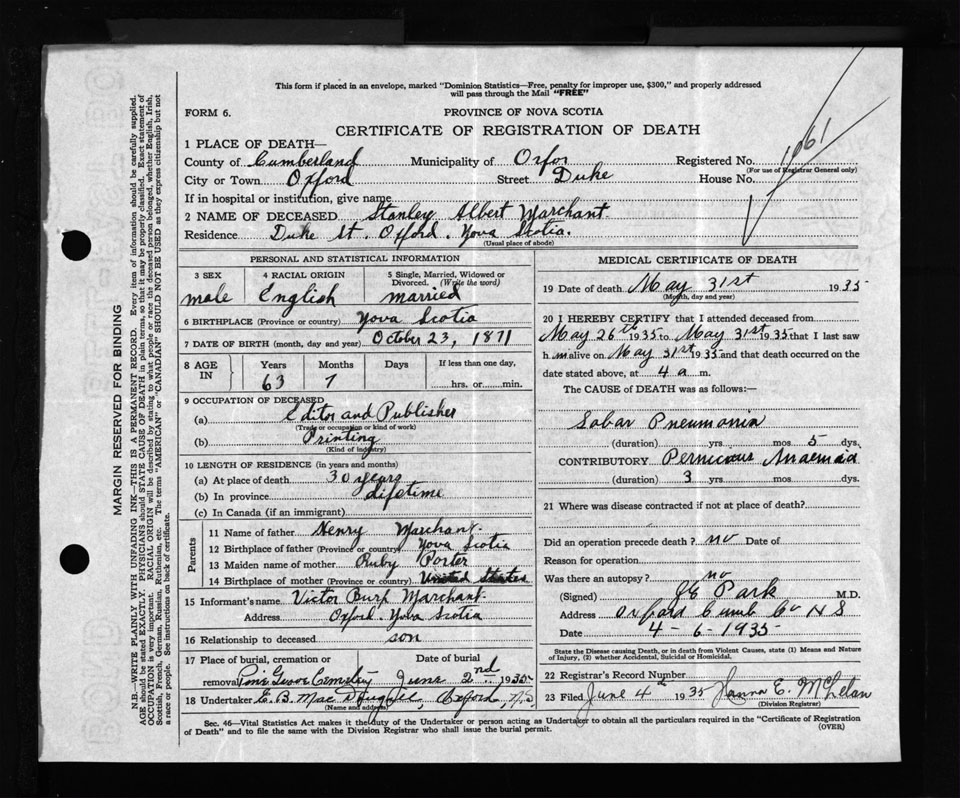 This form if placed in an envelope, marked "Dominion Statistics—Free, penalty for improper use, $300," and properly addressed
will pass through the Mail "FREE"
FORM 6. PROVINCE OF NOVA SCOTIA
CERTIFICATE OF REGISTRATION OF DEATH
1 PLACE OF DEATH—
County of Cumberland Municipality of Registered No. 1661
(For use of Registrar General only)
City or Town Oxford Street Duke House No.
If in hospital or institution, give name
2 NAME OF DECEASED Stanley Albert Marchant
Residence Duke St. Oxford. Nova Scotia.
(Usual place of abode)
PERSONAL AND STATISTICAL INFORMATION
3 SEX 4 RACIAL ORIGIN 5 Single, Married, Widowed or
Divorced. (Write the word)
male English married
6 BIRTHPLACE (Province or country) Nova Scotia
7 DATE OF BIRTH (month, day and year) October 23, 1871
8 AGE IN Years Months Days If less than one day,
63 7 hrs. or min.
9 OCCUPATION OF DECEASED
(a) Editor and Publisher
(Trade or occupation or kind of work)
(b) Printing
(Kind of industry)
10 LENGTH OF RESIDENCE (in years and months)
(a) At place of death 30 years
(b) In province lifetime
(c) In Canada (if an immigrant)
Parents
11 Name of father Henry Marchant
12 Birthplace of father (Province or country) Nova Scotia
13 Maiden name of mother Ruby Porter
14 Birthplace of mother (Province or country) United States
15 Informant's name Victor Marchant
Address Oxford Nova Scotia
16 Relationship to deceased son
17 Place of burial, cremation or Date of burial
removal Pine Grove Cemetery June 2nd 1935
18 Undertaker E. B. Oxford N.S
(Name and address)
MEDICAL CERTIFICATE OF DEATH
19 Date of death May 31st 1935
(Month, day and year)
20 I HEREBY CERTIFY that I attended deceased from
May 26th 1935 to May 31st 1935 that I last saw
him alive on May 31st 1935 and that death occurred on the
date stated above, at 4 a m.
The CAUSE OF DEATH was as follows:—
Lobar Pneumonia
(duration) yrs. mos. 5 dys.
CONTRIBUTORY Anaemia
(duration) 3 yrs. mos. dys.
21 Where was disease contracted if not at place of death?
Did an operation precede death? no Date of
Reason for operation
Was there an autopsy? no
(Signed) Park M.D.
Address Oxford Cumb Co N S
Date 4-6-1935
State the Disease causing Death, or in death from Violent Causes, state (1) Means and Nature
of Injury, (2) whether Accidental, Suicidal or Homicidal.
22 Registrar's Record Number
23 Filed June 4th 1935 Hanna E. McLelan
(Division Registrar)
Sec. 46—Vital Statistics Act makes it the duty of the Undertaker or person acting as Undertaker to obtain all the particulars required in the "Certificate of Registration
of Death" and to file the same with the Division Registrar who shall issue the burial permit. (OVER)
MARGIN RESERVED FOR BINDING
N.B.—WRITE PLAINLY WITH UNFADING INK—THIS IS A PERMANENT RECORD. Every item of information should be carefully supplied.
AGE should be stated EXACTLY. PHYSICIANS should STATE CAUSE OF DEATH in plain terms, so that it may be properly classified. Exact statement of
OCCUPATION is very important. RACIAL ORIGIN will be described by stating to what people or race the deceased person belonged, whether English, Irish,
Scottish, French, German, Russian, Ruthenian, etc. The terms "AMERICAN" or "CANADIAN" SHOULD NOT BE USED as they express citizenship but not
a race or people. See instructions on back of certificate.